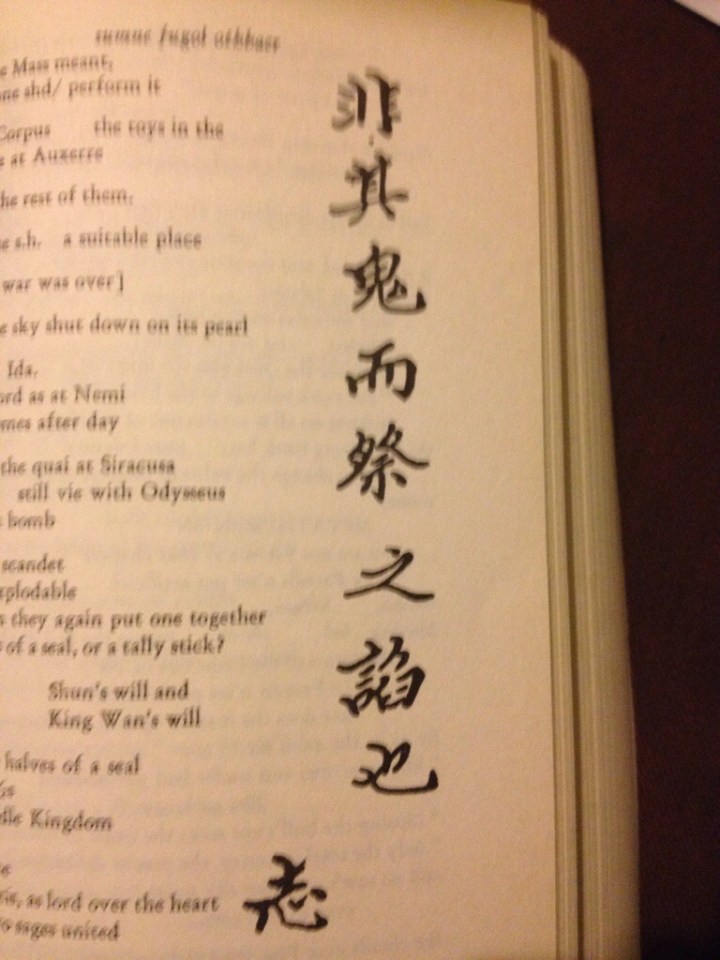 sumne fugol othbaer
e Mass meant,
one shd/ perform it
Corpus the toys in the
e at Auxerre
he rest of them,
e s.h. a suitable place
war was over]
e sky shut down on its pearl
Ida,
ord as at Nemi
mes after day
the quai at Siracusa
still vie with Odysseus
bomb
scandet
xplodable
s they again put one together
of a seal, or a tally stick?
Shun's will and
King Wan's will
halves of a seal
dle Kingdom
ris, as lord over the heart
o sages united
非其鬼而祭之諂也
志